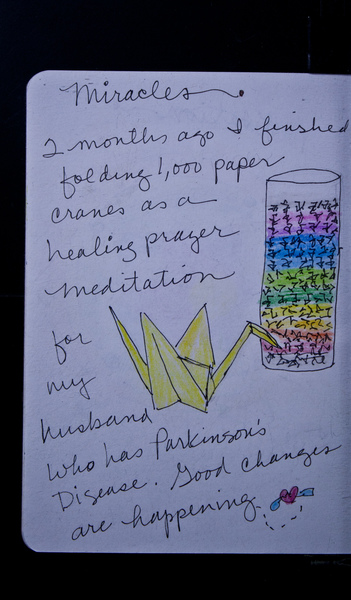 Miracles
2 months ago I finished
folding 1,000 paper
cranes as a
healing prayer
meditation
for
my
husband
who has Parkinson's
Disease. Good changes
are happening